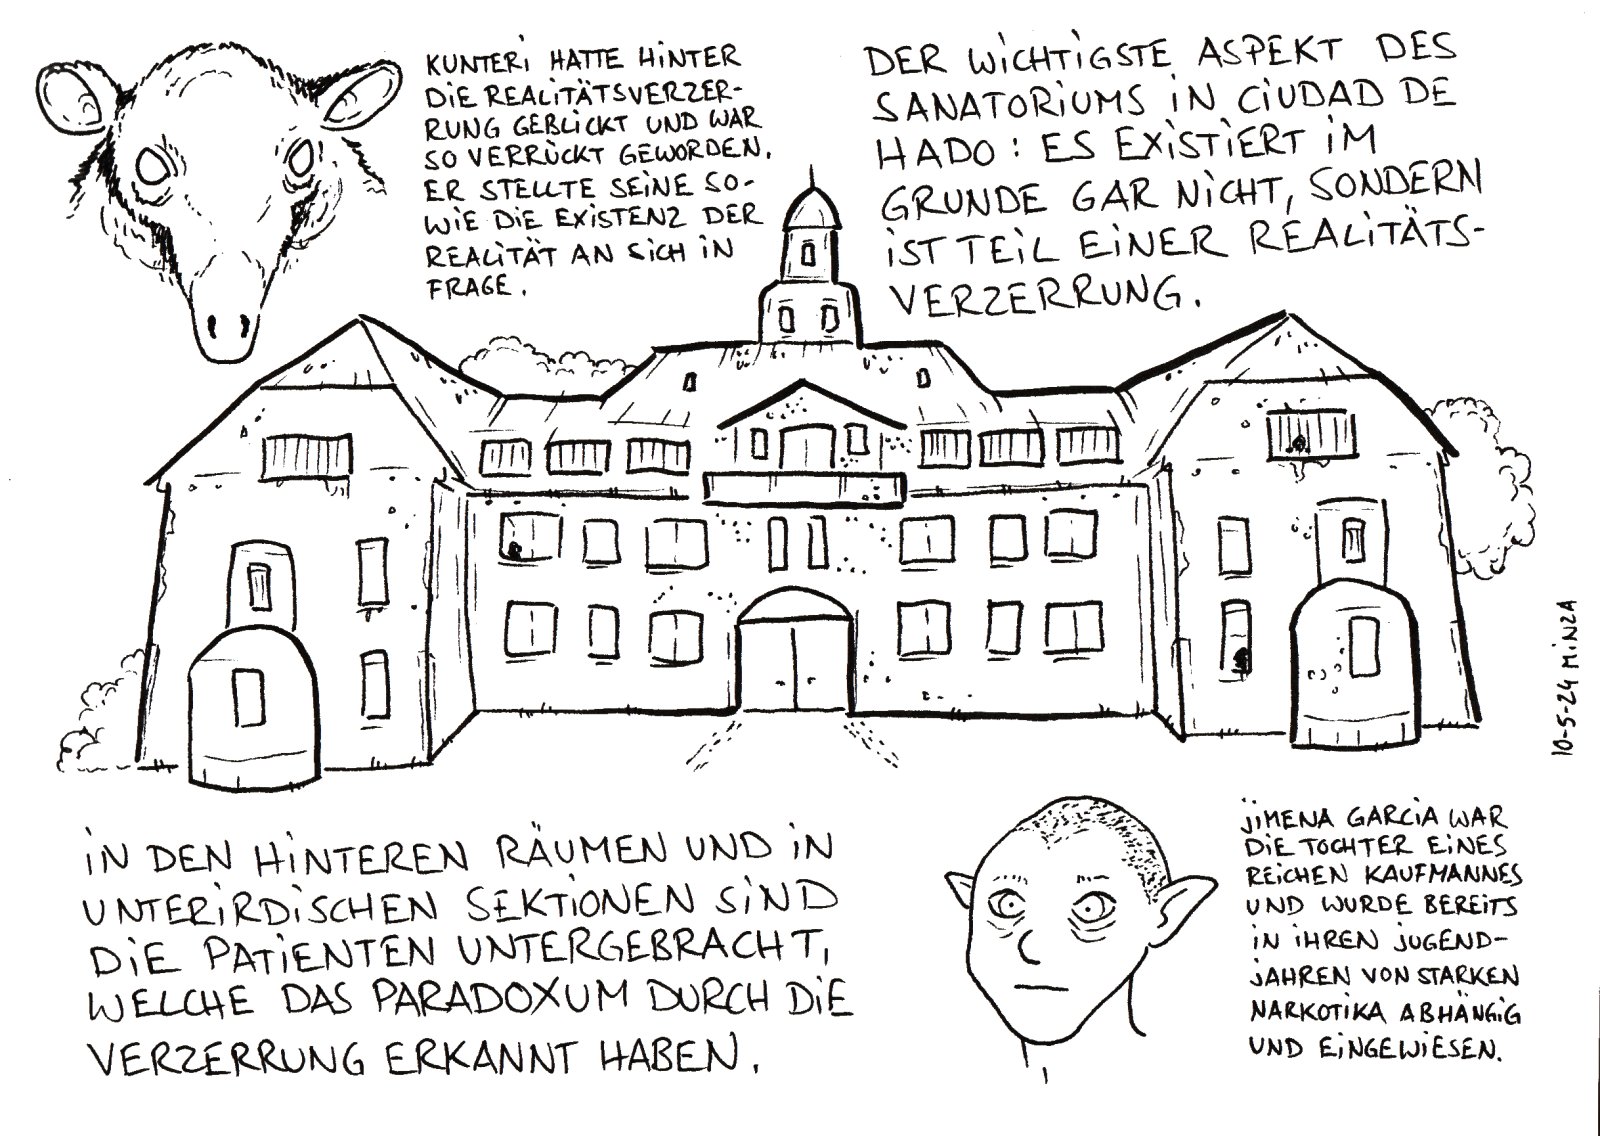 KUNTERI HATTE HINTER
DIE REALITÄTSVERZER-
RUNG GEBLICKT UND WAR
SO VERRÜCKT GEWORDEN.
ER STELLTE SEINE SO-
WIE DIE EXISTENZ DER
REALITÄT AN SICH IN
FRAGE.
DER WICHTIGSTE ASPEKT DES
SANATORIUMS IN CIUDAD DE
HADO: ES EXISTIERT IM
GRUNDE GAR NICHT, SONDERN
IST TEIL EINER REALITÄTS-
VERZERRUNG.
IN DEN HINTEREN RÄUMEN UND IN
UNTERIRDISCHEN SEKTIONEN SIND
DIE PATIENTEN UNTERGEBRACHT,
WELCHE DAS PARADOXUM DURCH DIE
VERZERRUNG ERKANNT HABEN.
JIMENA GARCIA WAR
DIE TOCHTER EINES
REICHEN KAUFMANNES
UND WURDE BEREITS
IN IHREN JUGEND-
JAHREN VON STARKEN
NARKOTIKA ABHÄNGIG
UND EINGEWIESEN.
10-5-24 MINZA